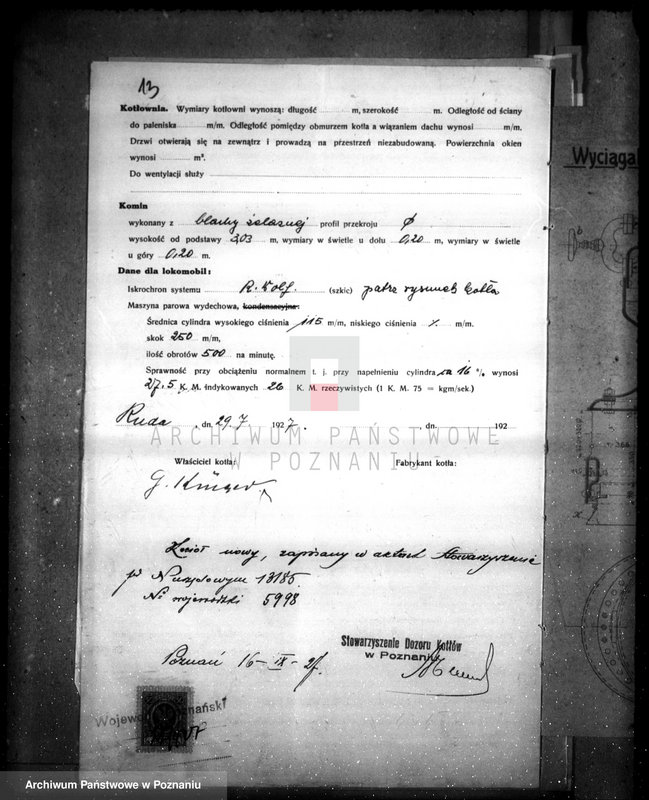 13
Kotłownia. Wymiary kotłowni wynoszą: długość m, szerokość m. Odległość od ściany
do paleniska m/m. Odległość pomiędzy obmurzem kotła a wiązaniem dachu wynosi m/m.
Drzwi otwierają się na zewnątrz i prowadzą na przestrzeń niezabudowaną. Powierzchnia okien
wynosi m².
Do wentylacji służy
Komin
wykonany z blachy żelaznej profil przekroju ø
wysokość od podstawy 3,03 m, wymiary w świetle u dołu 0,20 m, wymiary w świetle
u góry 0,20 m.
Dane dla lokomobil:
Iskrochron systemu R. Wolf. (szkic) patrz rysunek kotła
Maszyna parowa wydechowa, kondensacyjna:
Średnica cylindra wysokiego ciśnienia 115 m/m, niskiego ciśnienia m/m.
skok 250 m/m,
ilość obrotów 500 na minutę.
Sprawność przy obciążeniu normalnem t. j. przy napełnieniu cylindra ca 16 % wynosi
27.5 K. M. indykowanych 26 K. M. rzeczywistych (1 K. M. 75 = kgm/sek.)
Ruda, dn. 29.7 1927. , dn. 192
ARCHIWUM PAŃSTWOWE
W POZNANIU
Właściciel kotła: Fabrykant kotła:
G. Krüger
Kocioł nowy, zapisany w aktach Stowarzyszenia
pod N urzędowym 13185.
No wojewódzki 5998
Poznań 16-IX-27.
Stowarzyszenie Dozoru Kotłów
w Poznaniu
Wojewoda Poznański
Wyciąg
Archiwum Państwowe w Poznaniu